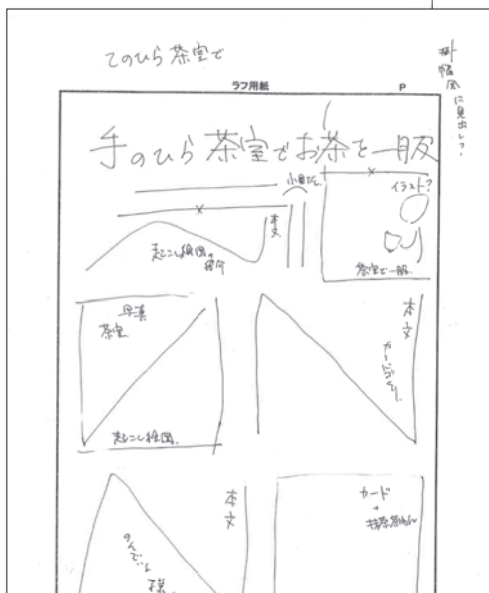 てのひら茶室で
掛幅風に見出し?
ラフ用紙
P
手のひら茶室でお茶を一服
小見だし
イラスト?
本文
起こし絵図の紹介
茶室で一服
写真
茶室
起こし絵図
本文
本文
カード
抹茶茶わん